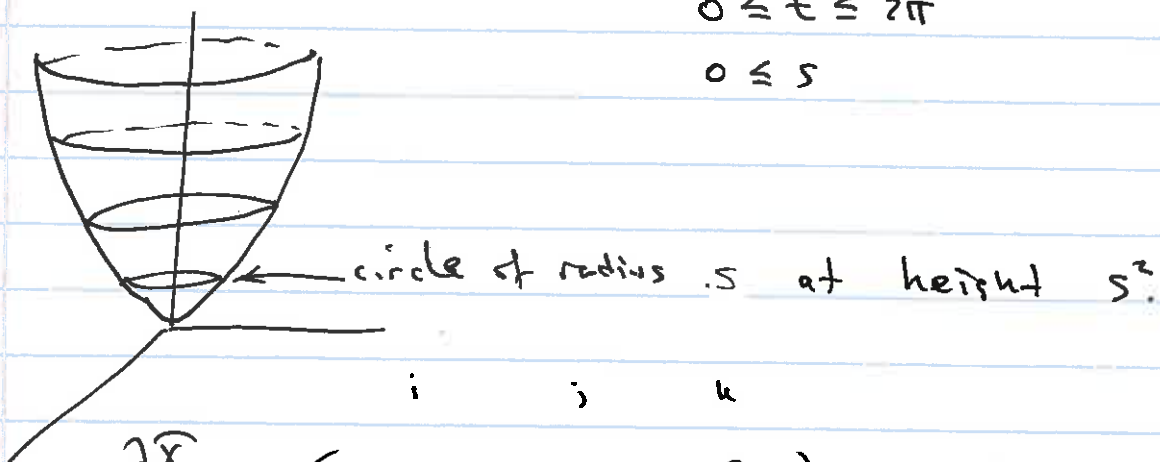 0 ≤ t ≤ 2π
0 ≤ s
circle of radius s at height s².
i j k